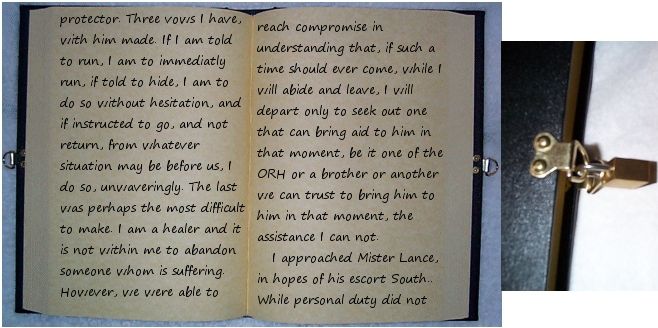 protector. Three vows I have,
with him made. If I am told
to run, I am to immediatly
run, if told to hide, I am to
do so without hesitation, and
if instructed to go, and not
return, from whatever
situation may be before us, I
do so, unwaveringly. The last
was perhaps the most difficult
to make. I am a healer and it
is not within me to abandon
someone whom is suffering.
However, we were able to
reach compromise in
understanding that, if such a
time should ever come, while I
will abide and leave, I will
depart only to seek out one
that can bring aid to him in
that moment, be it one of the
ORH or a brother or another
we can trust to bring him to
him in that moment, the
assistance I can not.
I approached Mister Lance,
in hopes of his escort South..
While personal duty did not